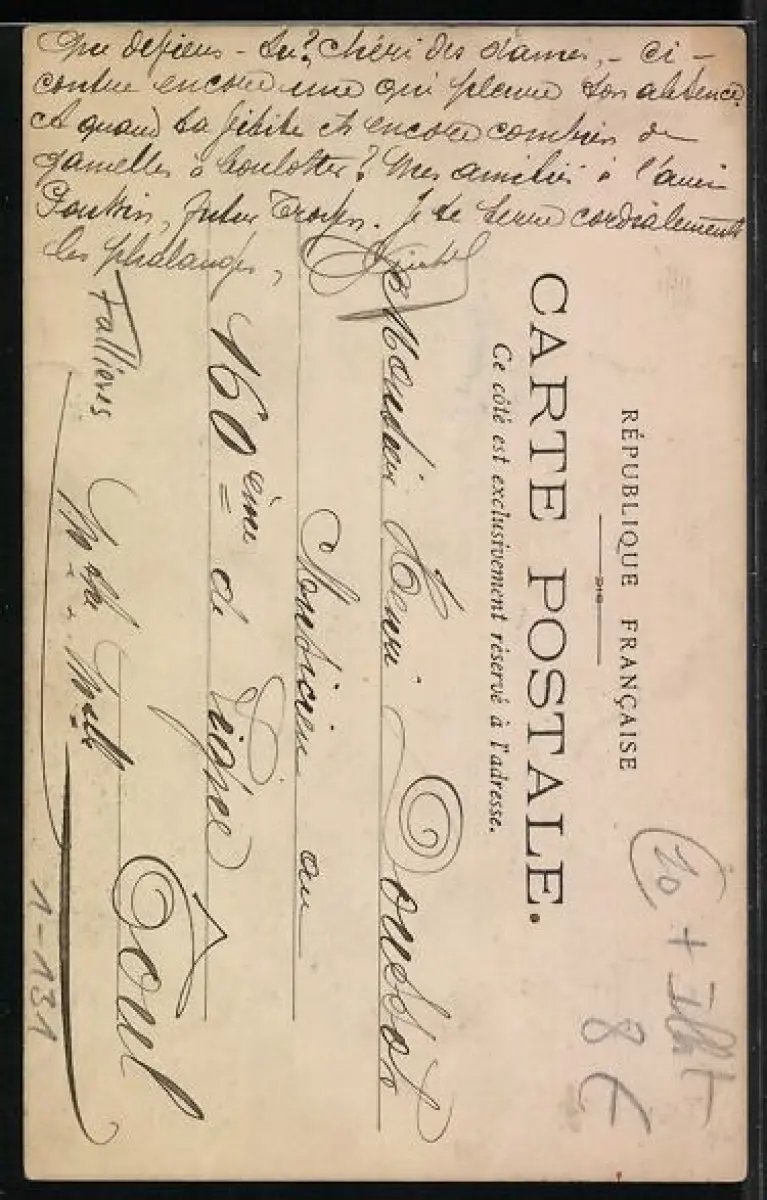 Que deviens-tu? Chéri des dames, - ci-
contre encore une qui pleure ton absence.
Et quand ta et encore combien de
gamelles à boulotter? Mes amitiés à l'ami
futur. Je te serre cordialement
les phalanges,
RÉPUBLIQUE FRANÇAISE
CARTE POSTALE.
Ce côté est exclusivement réservé à l'adresse.
Monsieur Henri Doussot
Musicien au
160ème de Ligne
Toul
Fallières
1-131
20 +
8 €